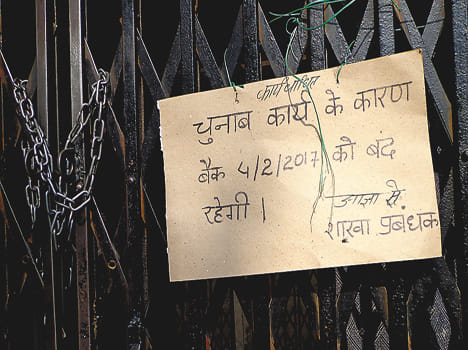 कार्यशाधित
चुनाव कार्य के कारण
बैंक 4/2/2017 को बंद
रहेगी।
आज्ञा से
शाखा प्रबंधक